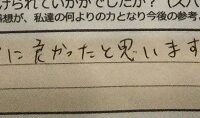 られていかがでしたか?(スパ
想が、私達の何よりの力となり今後の参考
に良かったと思います